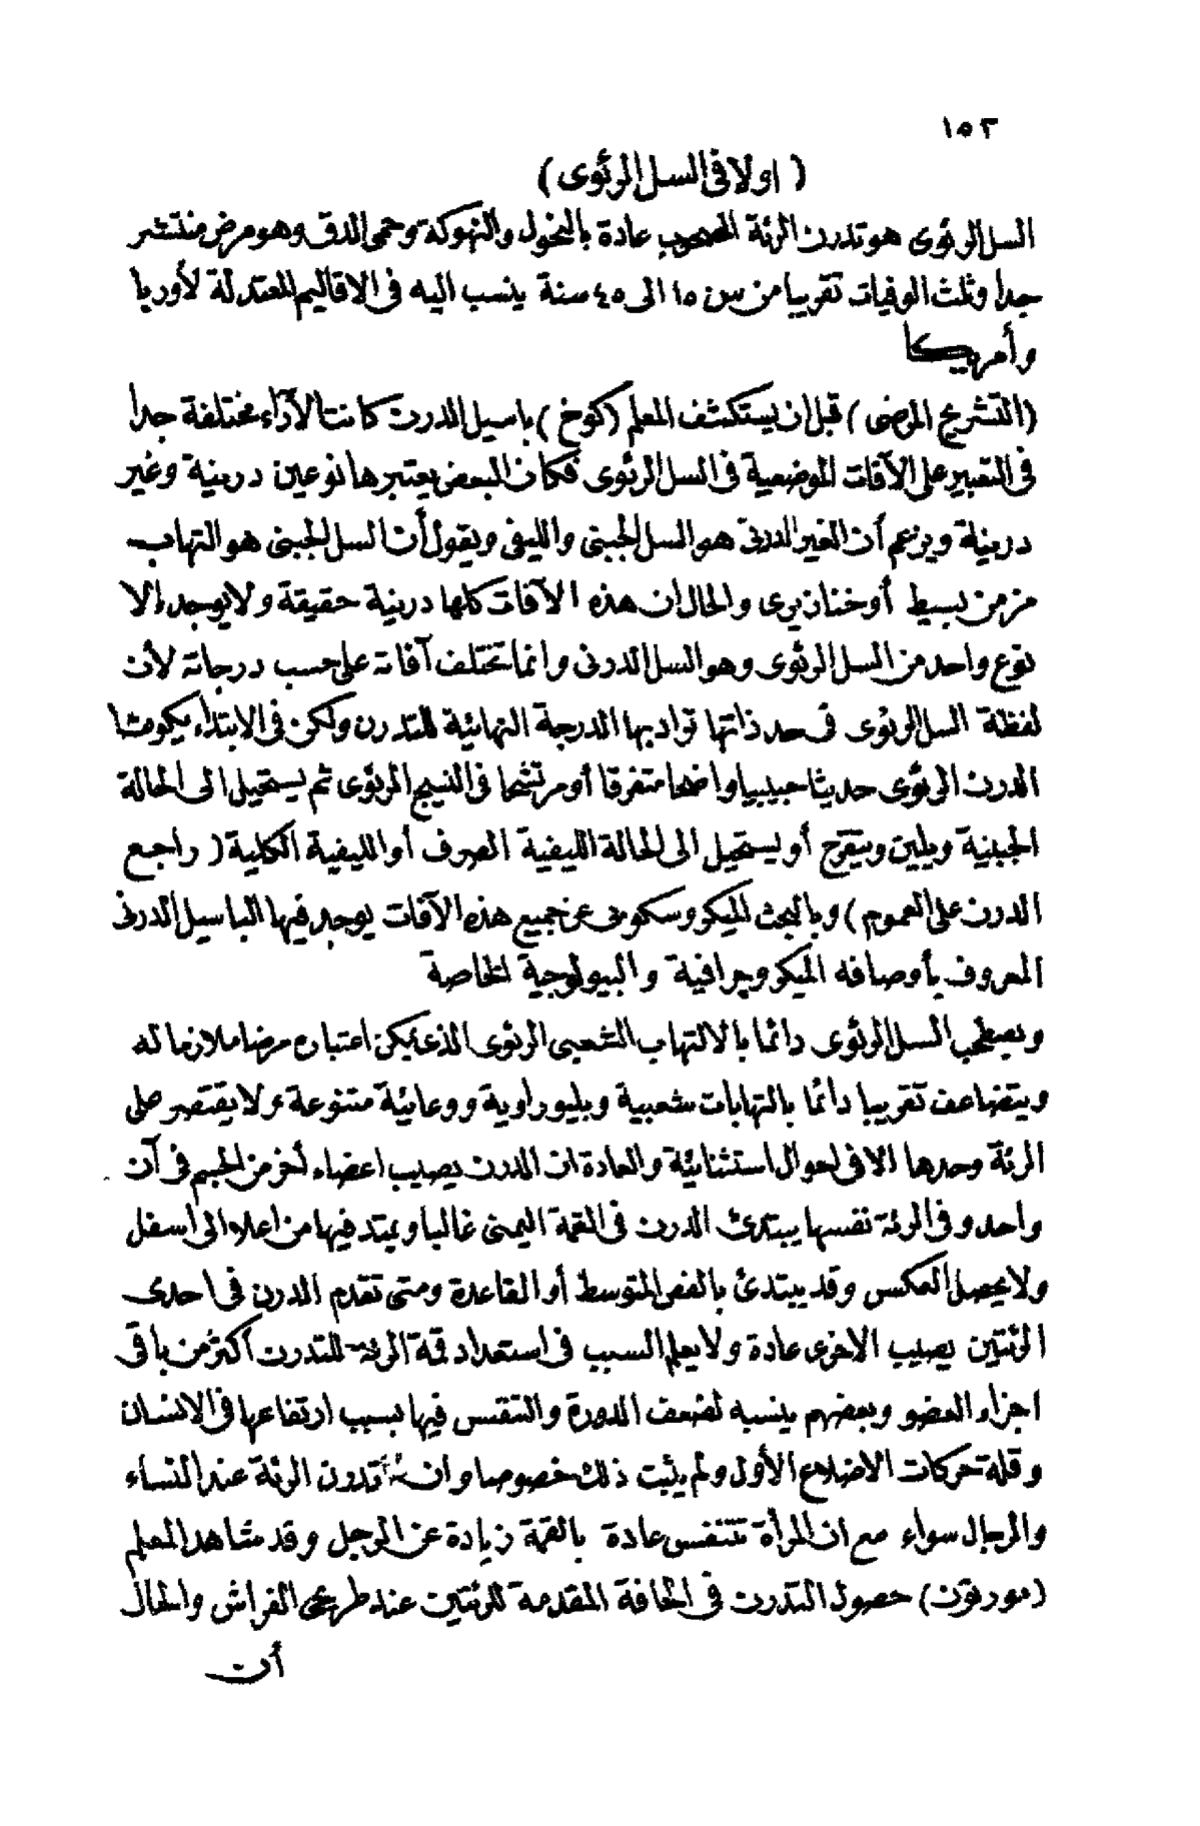 ١٥٢
( اولا فى السل الرئوى )
السل الرئوى هو تدرن الرئة المصحوب عادة بالنحول والنهوكة وحمى الدق وهو مرض منتشر
جدا وثلث الوفيات تقريبا من سن ١٥ الى ٤٥ سنة ينسب اليه فى الاقاليم المعتدلة لأوربا
وأمريكا
(التشريح المرضى) قبل ان يستكشف المعلم (كوخ) باسيل الدرن كانت الآراء مختلفة جدا
فى التعبير على الآفات الموضعية فى السل الرئوى فكان البعض يعتبرها نوعين درينية وغير
درينية ويزعم أن الغير الدرنى هو السل الجبنى والليفى ويقول أن السل الجبنى هو التهاب
مزمن بسيط أو خنازيرى والحال ان هذه الآفات كلها درينية حقيقة ولا يوجد الا
نوع واحد من السل الرئوى وهو السل الدرنى وانما تختلف آفاته على حسب درجاته لأن
لفظة السل الرئوى فى حد ذاتها تراد بها الدرجة النهائية للتدرن ولكن فى الابتداء يكون
الدرن الرئوى حديثا حبيبيا واضحا متفرقا أو مرتشحا فى النسيج الرئوى ثم يستحيل الى الحالة
الجبنية ويلين ويتقرح أو يستحيل الى الحالة الليفية الصرف أو الليفية الكلية ( راجع
الدرن على العموم ) وبالبحث الميكروسكوبى عن جميع هذه الآفات يوجد فيها الباسيل الدرنى
المعروف بأوصافه الميكروجرافية والبيولوجية الخاصة
ويصطحب السل الرئوى دائما بالالتهاب الشعبى الرئوى الذى يمكن اعتباره مرضا ملازما له
ويتضاعف تقريبا دائما بالتهابات شعبية وبليوراوية ووعائية متنوعة ولا يقتصر على
الرئة وحدها الا فى احوال استثنائية والعادة ان الدرن يصيب اعضاء أخر من الجسم فى آن
واحد وفى الرئة نفسها يبتدئ الدرن فى القمة اليمنى غالبا ويمتد فيها من اعلاء الى اسفل
ولا يحصل العكس وقد يبتدئ بالفص المتوسط أو القاعدة ومتى تقدم الدرن فى احدى
الرئتين يصيب الاخرى عادة ولا يعلم السبب فى استعداد قمة الرئة للتدرن اكثر من باقى
اجزاء العضو وبعضهم ينسبه لضعف الدورة والتنفس فيها بسبب ارتفاعها فى الانسان
وقلة حركات الاضلاع الأول ولم يثبت ذلك خصوصا وان تدرن الرئة عند النساء
والرجال سواء مع ان المرأة تتنفس عادة بالقمة زيادة عن الرجل وقد شاهد المعلم
(مورتون) حصول التدرن فى الحافة المقدمة للرئتين عند طريحى الفراش والحال
أن